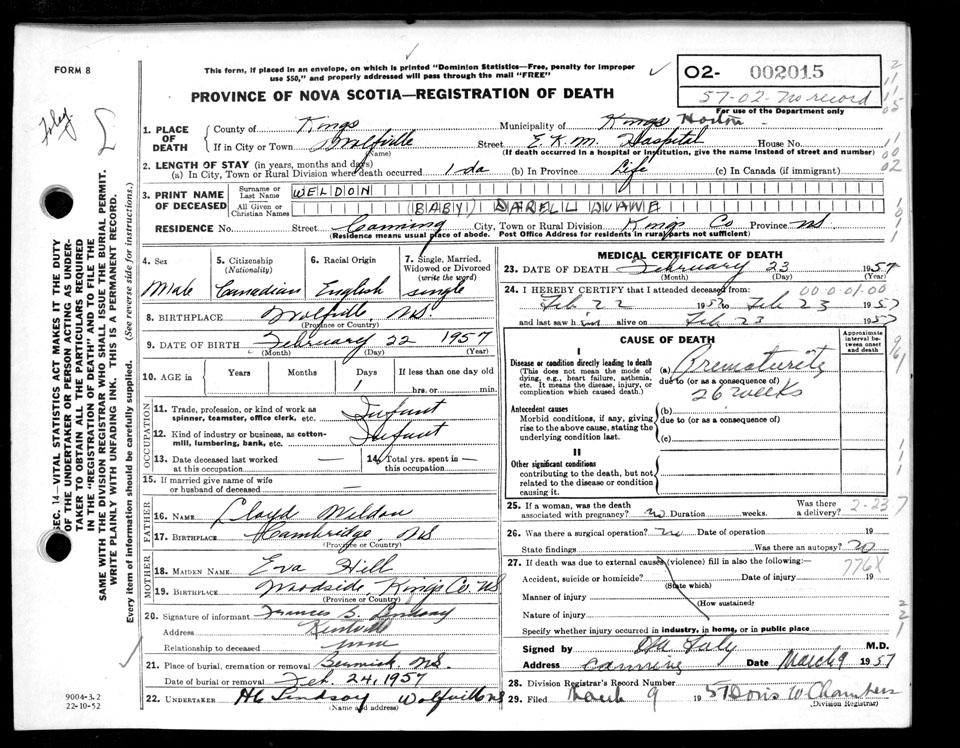 FORM 8
This form, if placed in an envelope, on which is printed "Dominion Statistics—Free, penalty for improper
use $50," and properly addressed will pass through the mail "FREE"
02- 002015
57-02-No record
For use of the Department only
PROVINCE OF NOVA SCOTIA—REGISTRATION OF DEATH
Foley
1. PLACE OF DEATH
County of Kings Municipality of Kings Horton
If in City or Town Wolfville Street E.K.M. Hospital House No.
(Name) (If death occurred in a hospital or institution, give the name instead of street and number)
2. LENGTH OF STAY (in years, months and days)
(a) In City, Town or Rural Division where death occurred 1 da (b) In Province Life (c) In Canada (if immigrant)
3. PRINT NAME OF DECEASED
Surname or Last Name WELDON
All Given or Christian Names (BABY) DUANE
RESIDENCE No. Street Canning City, Town or Rural Division Kings Co Province NS
(Residence means usual place of abode. Post Office Address for residents in rural parts not sufficient)
4. Sex Male
5. Citizenship (Nationality) Canadian
6. Racial Origin English
7. Single, Married, Widowed or Divorced (write the word) single
8. BIRTHPLACE Wolfville NS
(Province or Country)
9. DATE OF BIRTH February 22 1957
(Month) (Day) (Year)
10. AGE in Years Months Days 1 If less than one day old
hrs. or min.
OCCUPATION
11. Trade, profession, or kind of work as spinner, teamster, office clerk, etc. Infant
12. Kind of industry or business, as cotton-mill, lumbering, bank, etc. Infant
13. Date deceased last worked at this occupation —
14. Total yrs. spent in this occupation —
15. If married give name of wife or husband of deceased —
FATHER
16. NAME Lloyd Weldon
17. BIRTHPLACE Cambridge, NS
(Province or Country)
MOTHER
18. MAIDEN NAME Eva Hill
19. BIRTHPLACE Woodside, Kings Co. NS
(Province or Country)
20. Signature of informant Frances S. Lindsay
Address Kentville
Relationship to deceased none
21. Place of burial, cremation or removal Berwick, NS.
Date of burial or removal Feb. 24, 1957
22. UNDERTAKER Lindsay Wolfville NS
(Name and address)
MEDICAL CERTIFICATE OF DEATH
23. DATE OF DEATH February 23 1957
(Month) (Day) (Year)
24. I HEREBY CERTIFY that I attended deceased from: 00-0-01-00
Feb 22 1957 to Feb 23 1957
and last saw him alive on Feb 23 1957
CAUSE OF DEATH
Approximate interval between onset and death
I
Disease or condition directly leading to death
(This does not mean the mode of dying, e.g., heart failure, asthenia, etc. It means the disease, injury, or complication which caused death.)
(a) Prematurity
due to (or as a consequence of)
26 weeks
Antecedent causes
Morbid conditions, if any, giving rise to the above cause, stating the underlying condition last.
(b)
due to (or as a consequence of)
(c)
II
Other significant conditions
contributing to the death, but not related to the disease or condition causing it.
25. If a woman, was the death associated with pregnancy? no Duration weeks. Was there a delivery? 2-23-7
26. Was there a surgical operation? no Date of operation 19
State findings Was there an autopsy? no
27. If death was due to external causes (violence) fill in also the following:— 776X
Accident, suicide or homicide? Date of injury 19
(State which)
Manner of injury
(How sustained)
Nature of injury
Specify whether injury occurred in industry, in home, or in public place
Signed by Foley M.D.
Address Canning Date March 9 1957
28. Division Registrar's Record Number
29. Filed March 9 1957 Doris W Chambers
(Division Registrar)
SEC. 14—VITAL STATISTICS ACT MAKES IT THE DUTY
OF THE UNDERTAKER OR PERSON ACTING AS UNDER-
TAKER TO OBTAIN ALL THE PARTICULARS REQUIRED
IN THE "REGISTRATION OF DEATH" AND TO FILE THE
SAME WITH THE DIVISION REGISTRAR WHO SHALL ISSUE THE BURIAL PERMIT.
WRITE PLAINLY WITH UNFADING INK. THIS IS A PERMANENT RECORD.
Every item of information should be carefully supplied. (See reverse side for instructions.)
9004-3.2
22-10-52